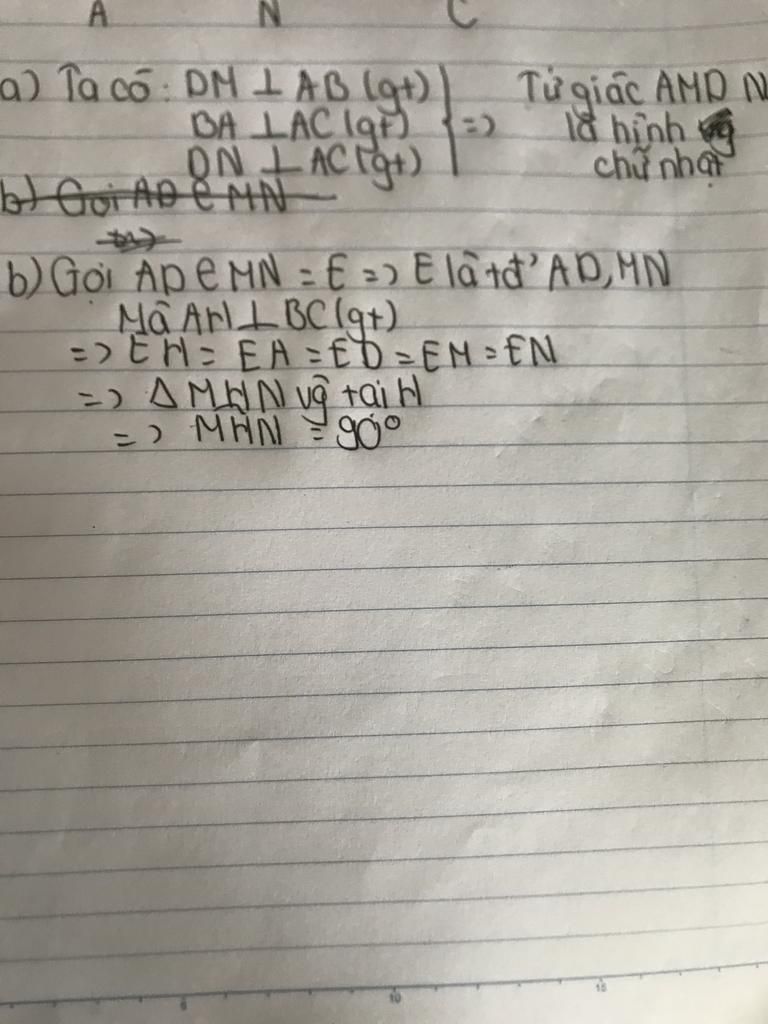 A N C
a) Ta có: DM ⊥ AB (gt)
BA ⊥ AC (gt)
DN ⊥ AC (gt)
=> Tứ giác AMDN
là hình
chữ nhật
b) Gọi AD ∩ MN
b) Gọi AD ∩ MN = E => E là tđ' AD, MN
Mà AH ⊥ BC (gt)
=> EH = EA = ED = EM = EN
=> Δ MHN vg tại H
=> MHN = 90°
5 10 15